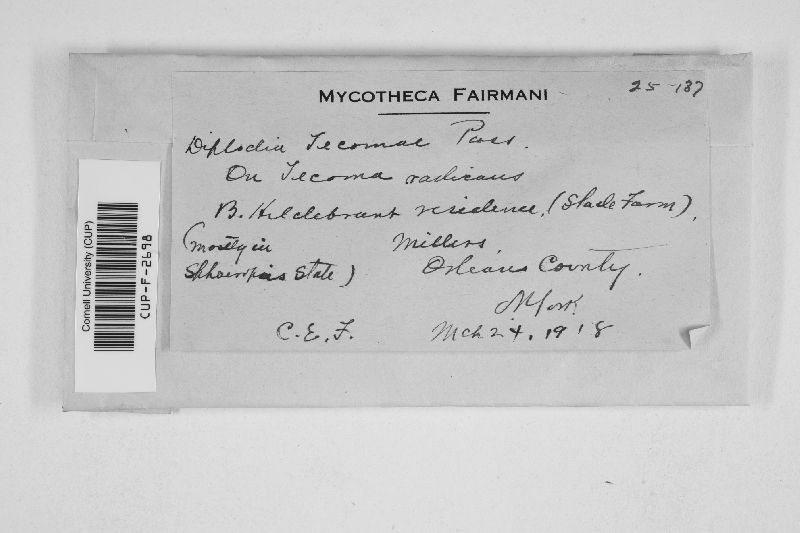 MYCOTHECA FAIRMANI
25-137
Diplodia Tecomae Pass.
On Tecoma radicans
B. Hildebrant residence, (Slade Farm),
(mostly in
Millers,
Sphaeropsis State)
Orleans County.
N York
C. E. F.
Mch 24, 1918
Cornell University (CUP)
CUP-F-2698